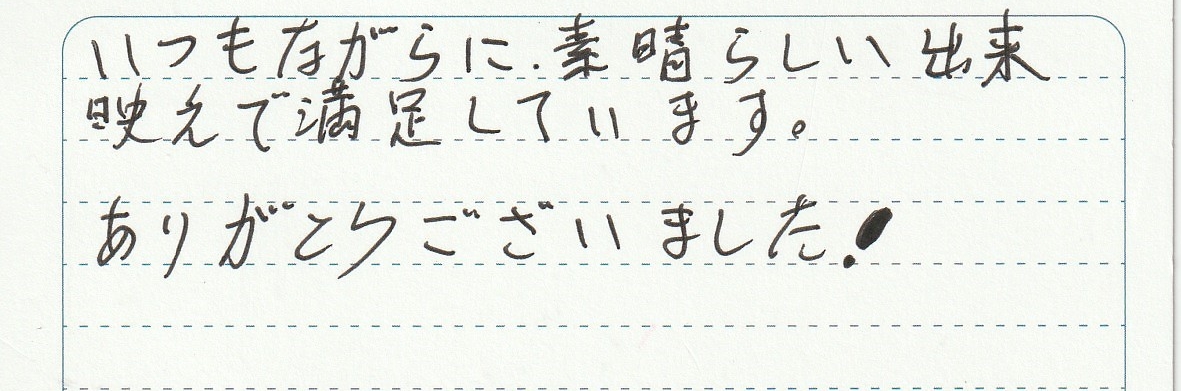 いつもながらに、素晴らしい出来
映えで満足しています。
ありがとうございました!